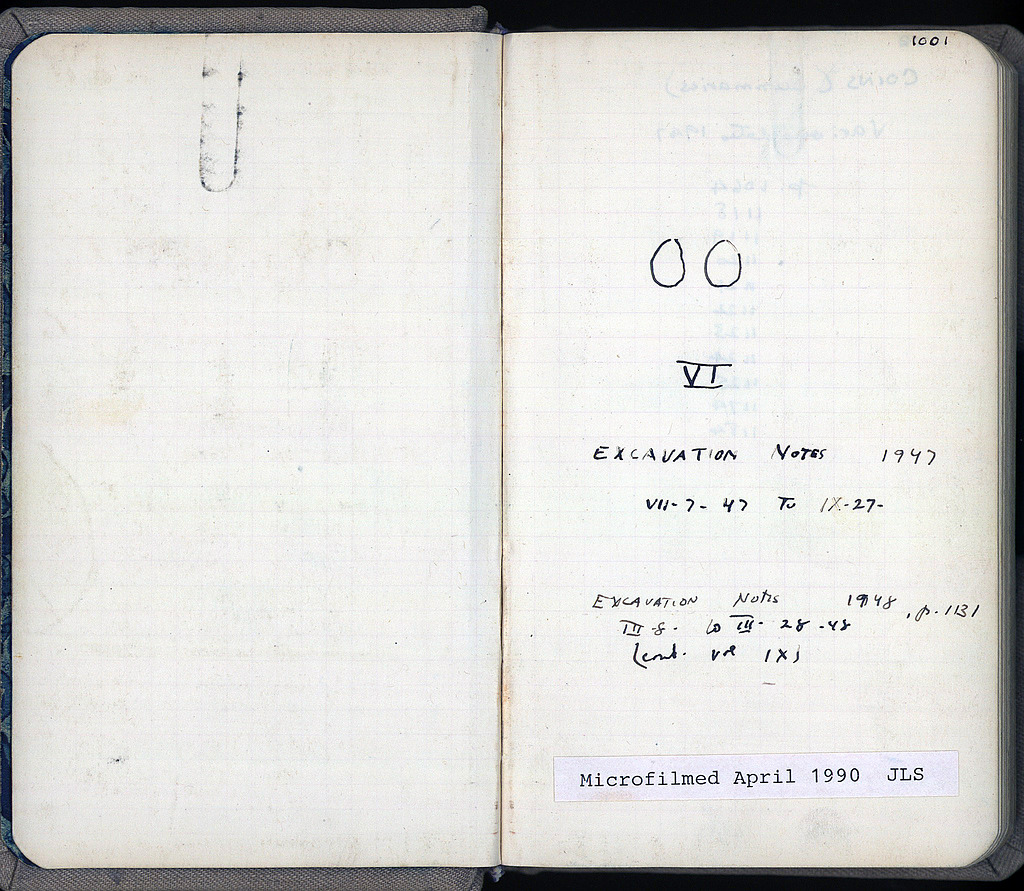 1001
OO
VI
EXCAVATION NOTES 1947
VII-7-47 To IX-27-
EXCAVATION NOTES 1948, p. 1131
III-8- to III-28-48
(cont. vol IX)
Microfilmed April 1990 JLS